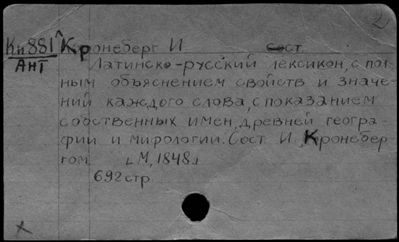 2
Кн881^ Кронеберг И сост.
АНТ
Латинско-русский лексикон, с пол-
ным объяснением свойств и значе-
ний каждого слова, с показанием
собственных имен древней геогра-
фии и мифологии. Сост И. Кронебер-
гом [М, 1848]
692 стр
x